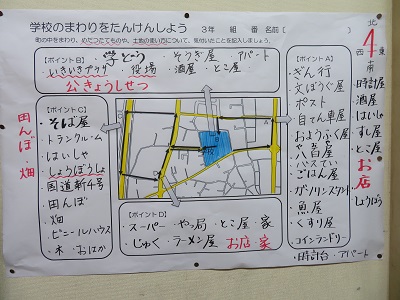 学校のまわりをたんけんしよう 3年 組 番 名前〔
町の中をまわり、めだつたてものや、土地の使い方について、気付いたことを記入しましょう。
北
西 4 東
南
ポイントB
・学どう ・そうぎ屋 ・アパート
・いきいきプラザ ・役場 ・酒屋 ・とこ屋
公きょうしせつ
ポイントC
・そば屋
・トランクルーム
・はいしゃ
・しょうぼうしょ
・国道新4号
・田んぼ
・畑
・ビニールハウス
・木 ・おはか
田んぼ・畑
ポイントA
・ぎん行
・文ぼうぐ屋
・ポスト
・自てん車屋
・おようふく屋
・八百屋
・バスてい
・ごはん屋
・ガソリンスタンド
・魚屋
・くすり屋
・コインランドリー
・時計台 ・アパート
・時計屋
・酒屋
・はいしゃ
・すし屋
・とこ屋
お店
ポイントD
・スーパー ・やっ局 ・とこ屋 ・家
・じゅく ・ラーメン屋 お店・家